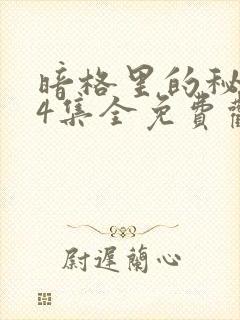 暗格里的秘
4集全免費
尉遲蘭心